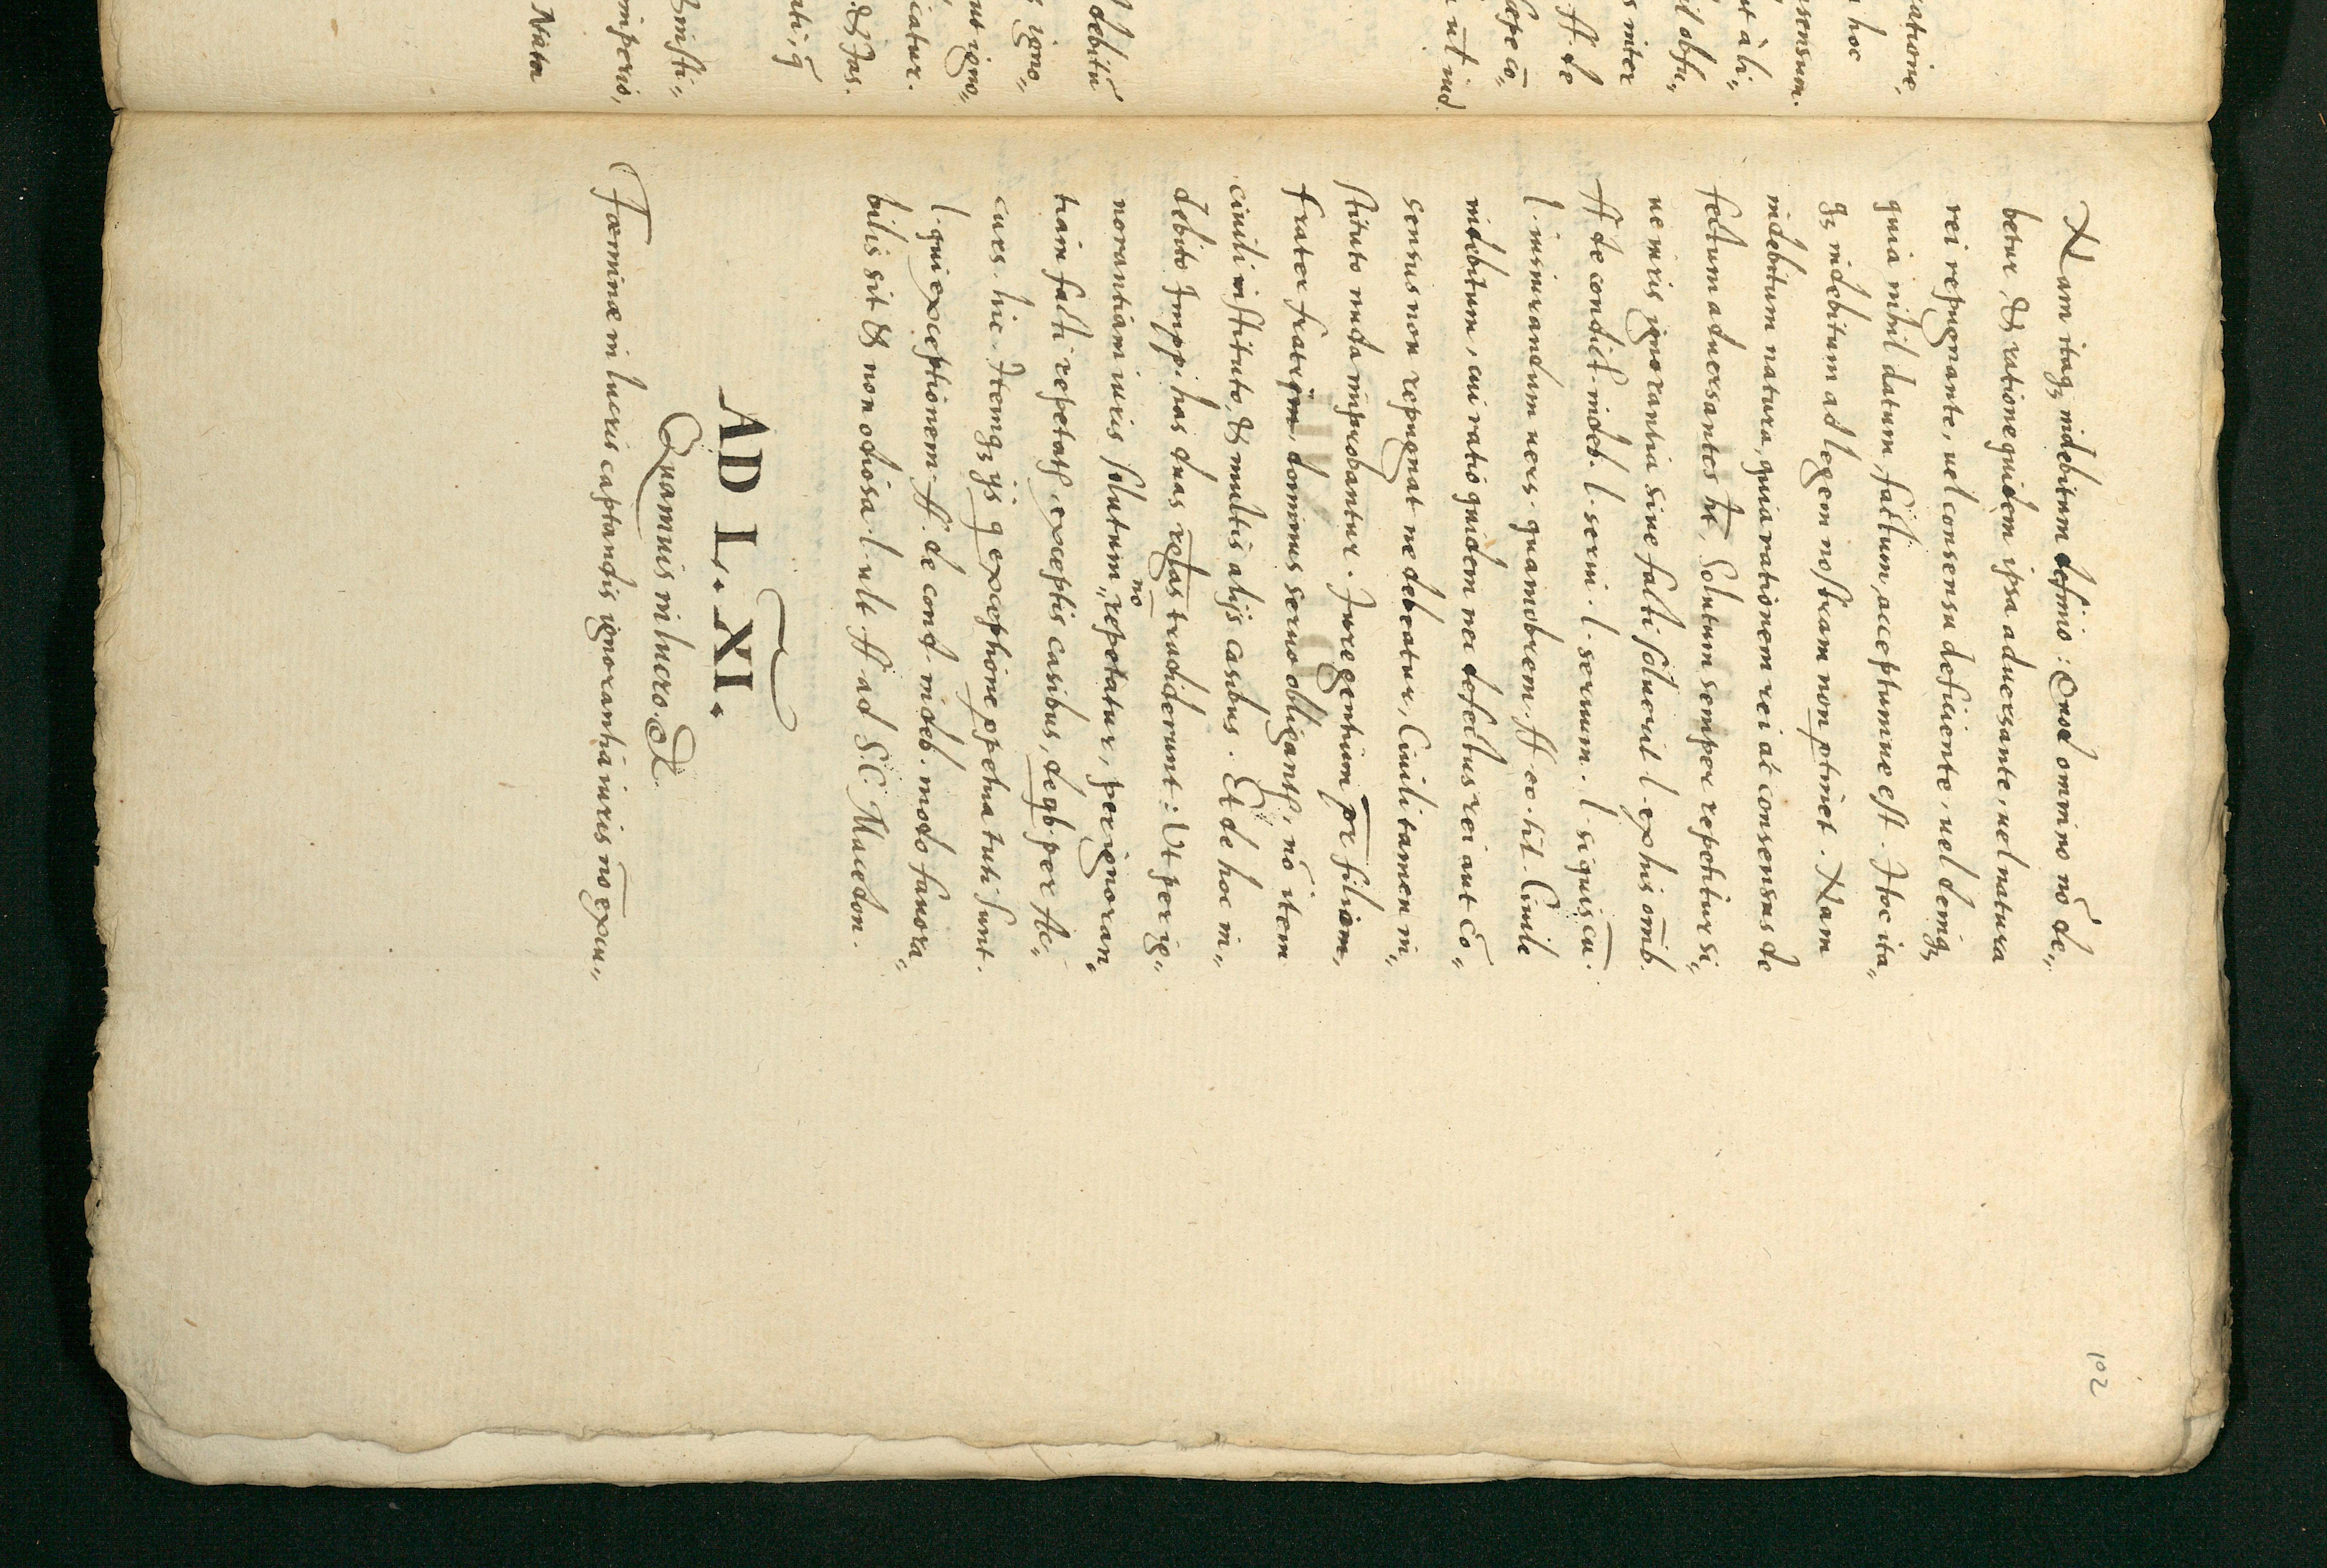 102
Nam itaqꝫ indebitum definio: Quod omnino nō de„
betur, & ratione quidem ipsa aduersante, uel natura
rei repugnante, uel consensu deficiente, uel deniqꝫ
quia nihil datum, factum, acceptumue est. Hoc ita„
qꝫ indebitum ad legem nostram non ptinet. Nam
indebitum natura, quia rationem rei ac consensus de
fectum aduersantes ht, Solutum semper repetitur si„
ue iuris ignorantia siue facti soluerit l. ex his omīb.
ff de condict. indeb. l. serui. l. seruum. l. siquis cu.
l. iusiurandum uers. quamobrem. ff eo. tit. Ciuile
indebitum, cui ratio quidem nec defectus rei aut cō„
sensus non repugnat ne debeatur, Ciuili tamen in„
stituto nuda improbantur. Jure gentium pr̄ filium,
frater fratrem, dominus seruo obligant, nō item
ciuili instituto, & multis alijs casibus. Et de hoc in„
debito Impp. has duas reglas tradiderunt: Vt per ig„
norantiam iuris solutum „ nō repetatur, per ignoran„
tiam facti repetat, exceptis casibus, de qb. per Ac„
curs. hic. Itemqꝫ ijs q exceptione ppetua tuti sunt.
l. qui exceptionem. ff. de cond. indeb. modo fauora„
bilis sit & non odiosa. l. ult. ff ad S.C. Macedon.
AD L. XI.
Quamuis in lucro. D.
Fœminæ in lucris captandis ignorantia iuris nō excu„
ratione,
hoc
sensum.
ut à li„
il obsu„
s inter
ff. de
sæpe cō„
ut iud
debitū
s igno„
ut igno„
icatur.
& Jas.
ati, q̄
& insti„
imperio,
Nata